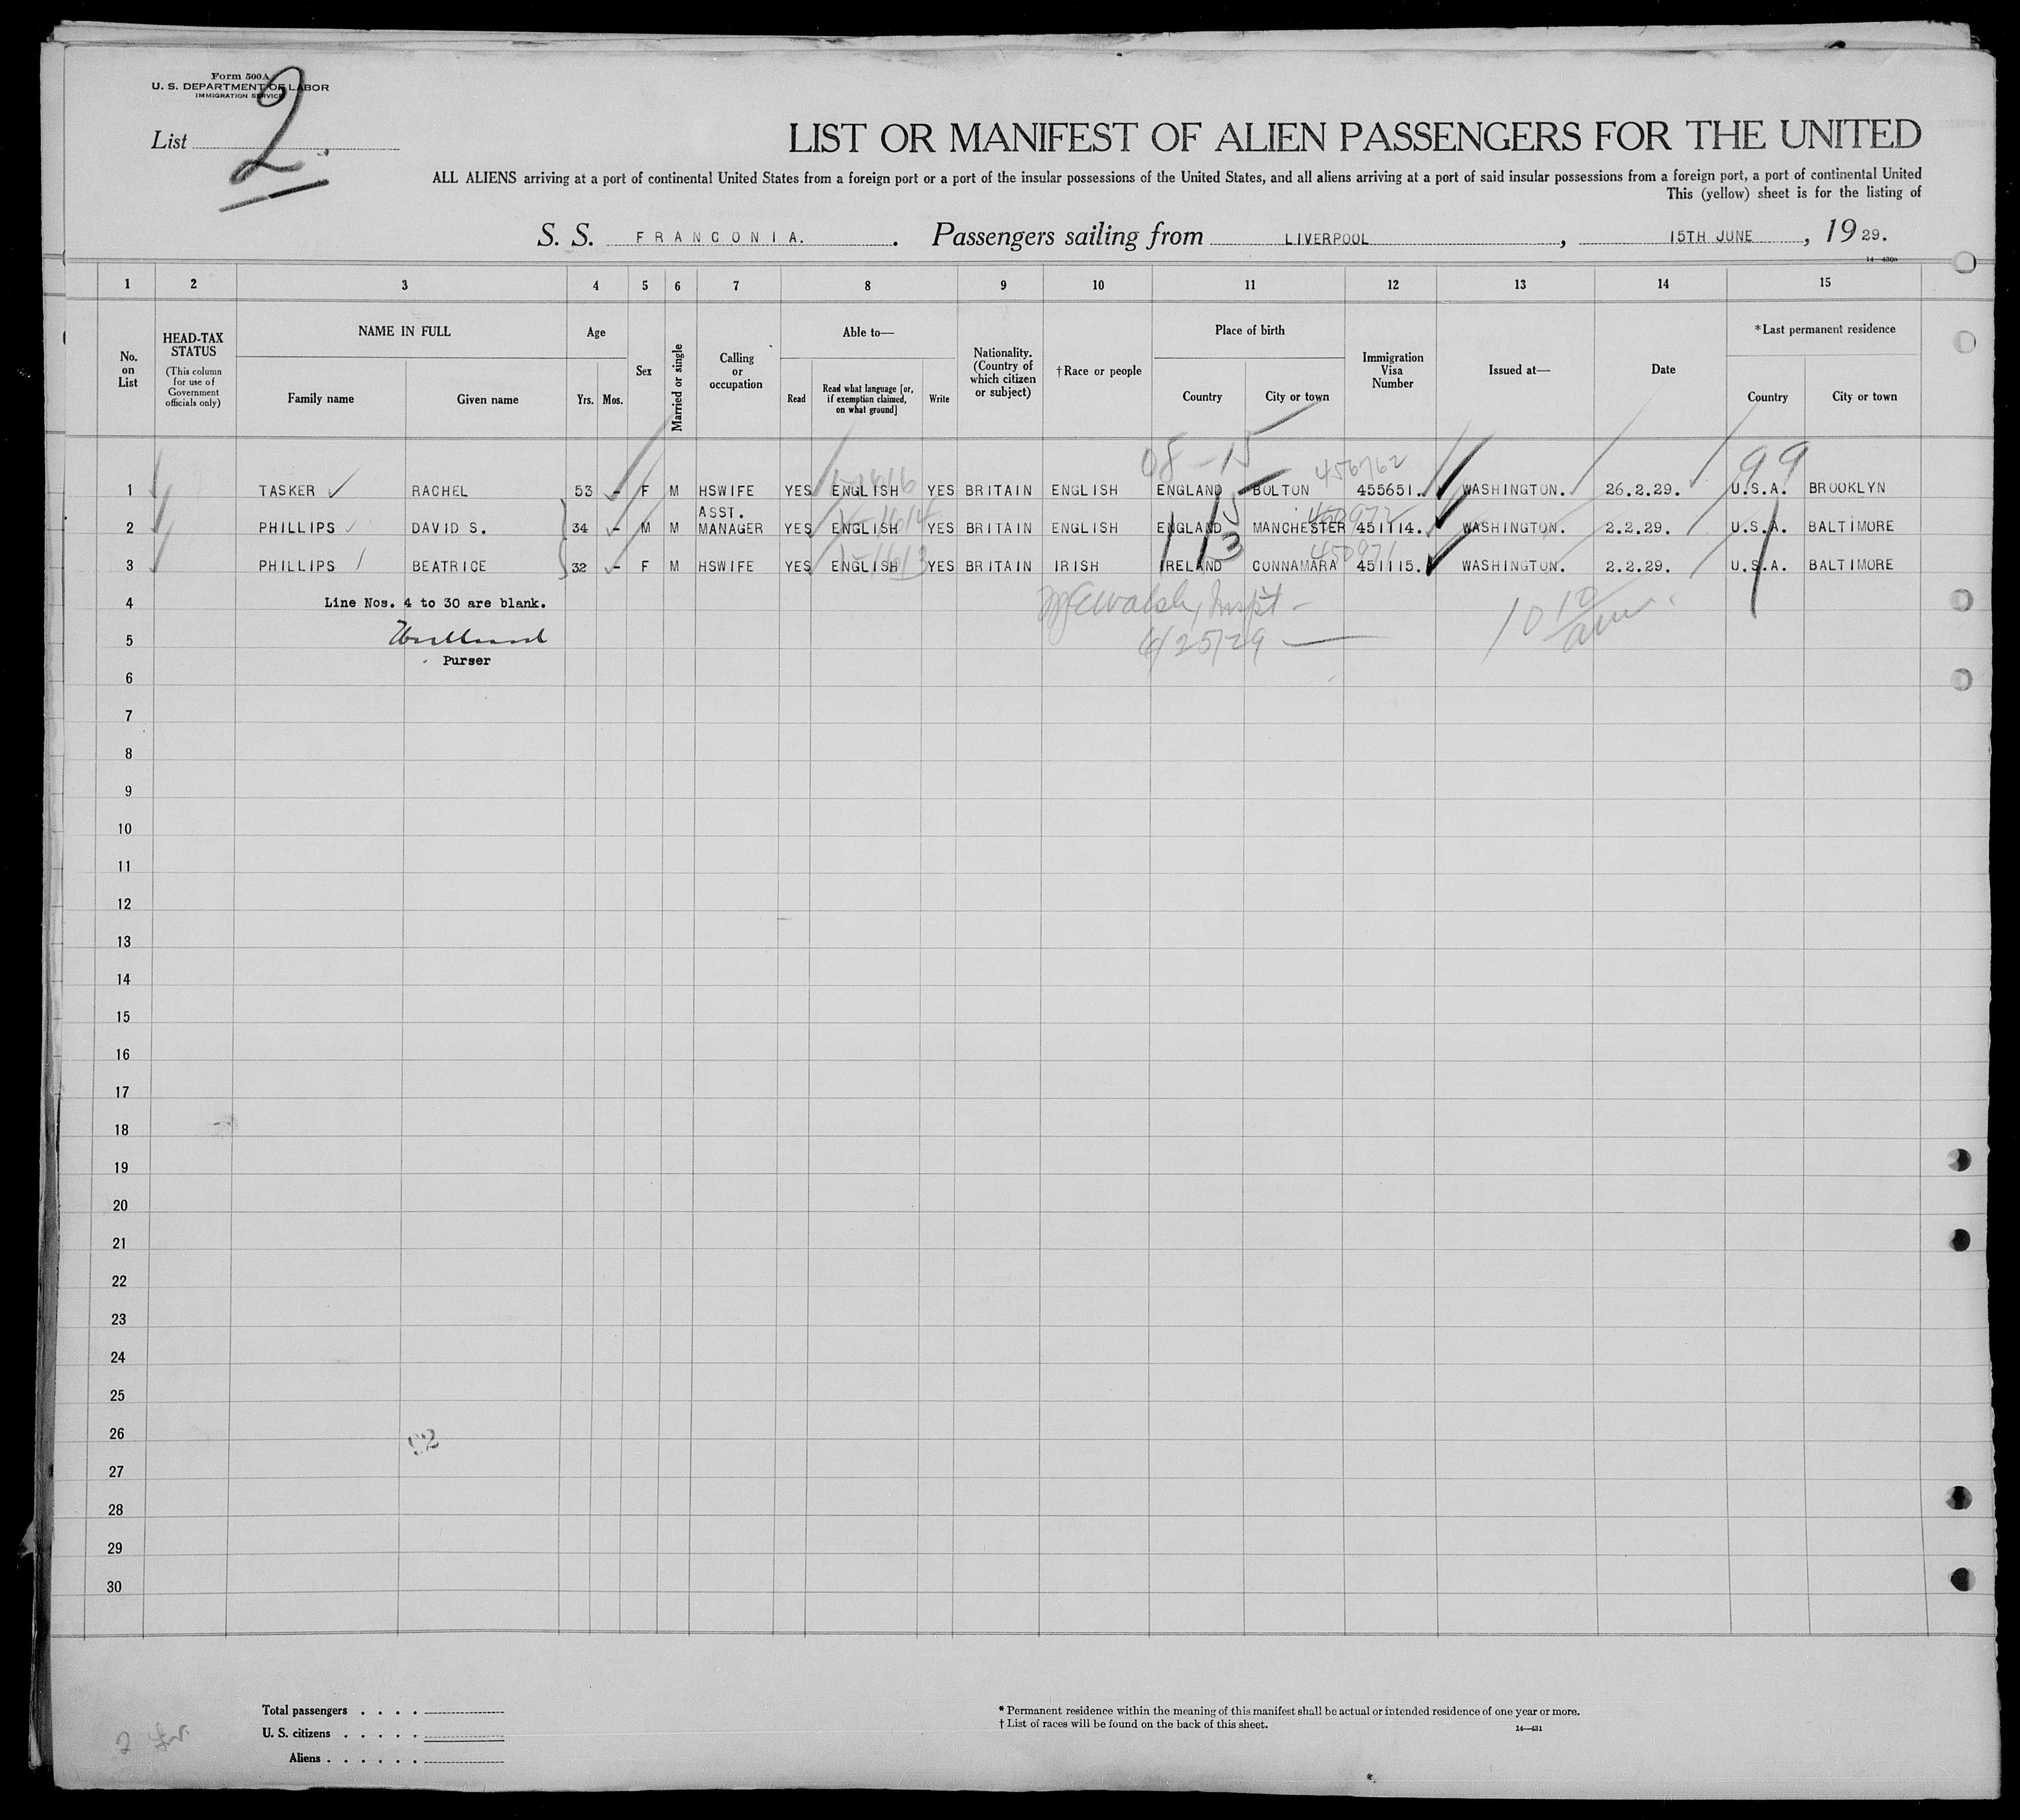 Form 500A
U. S. DEPARTMENT OF LABOR
IMMIGRATION SERVICE
List 2.
LIST OR MANIFEST OF ALIEN PASSENGERS FOR THE UNITED
ALL ALIENS arriving at a port of continental United States from a foreign port or a port of the insular possessions of the United States, and all aliens arriving at a port of said insular possessions from a foreign port, a port of continental United
This (yellow) sheet is for the listing of
S. S. FRANCONIA. . Passengers sailing from LIVERPOOL , 15TH JUNE , 19 29.
1 2 3 4 5 6 7 8 9 10 11 12 13 14 15
No. on List
HEAD-TAX STATUS
(This column for use of Government officials only)
NAME IN FULL
Family name Given name
Age
Yrs. Mos.
Sex
Married or single
Calling or occupation
Able to—
Read
Read what language [or, if exemption claimed, on what ground]
Write
Nationality. (Country of which citizen or subject)
† Race or people
Place of birth
Country City or town
Immigration Visa Number
Issued at—
Date
* Last permanent residence
Country City or town
08-15 456762 99
1 TASKER RACHEL 53 - F M HSWIFE YES ENGLISH YES BRITAIN ENGLISH ENGLAND BOLTON 455651. WASHINGTON. 26.2.29. U.S.A. BROOKLYN
450972
2 PHILLIPS DAVID S. 34 - M M ASST. MANAGER YES ENGLISH YES BRITAIN ENGLISH ENGLAND MANCHESTER 451114. WASHINGTON. 2.2.29. U.S.A. BALTIMORE
450971
3 PHILLIPS BEATRICE 32 - F M HSWIFE YES ENGLISH YES BRITAIN IRISH IRELAND CONNAMARA 451115. WASHINGTON. 2.2.29. U.S.A. BALTIMORE
4 Line Nos. 4 to 30 are blank. Walsh, Inspt -
5 6/25/29
Purser
6
7
8
9
10
11
12
13
14
15
16
17
18
19
20
21
22
23
24
25
26
27
28
29
30
Total passengers . . . .
U. S. citizens . . . . .
Aliens . . . . . .
* Permanent residence within the meaning of this manifest shall be actual or intended residence of one year or more.
† List of races will be found on the back of this sheet.
14—431